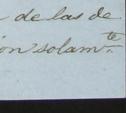 de las de
ón solam.te